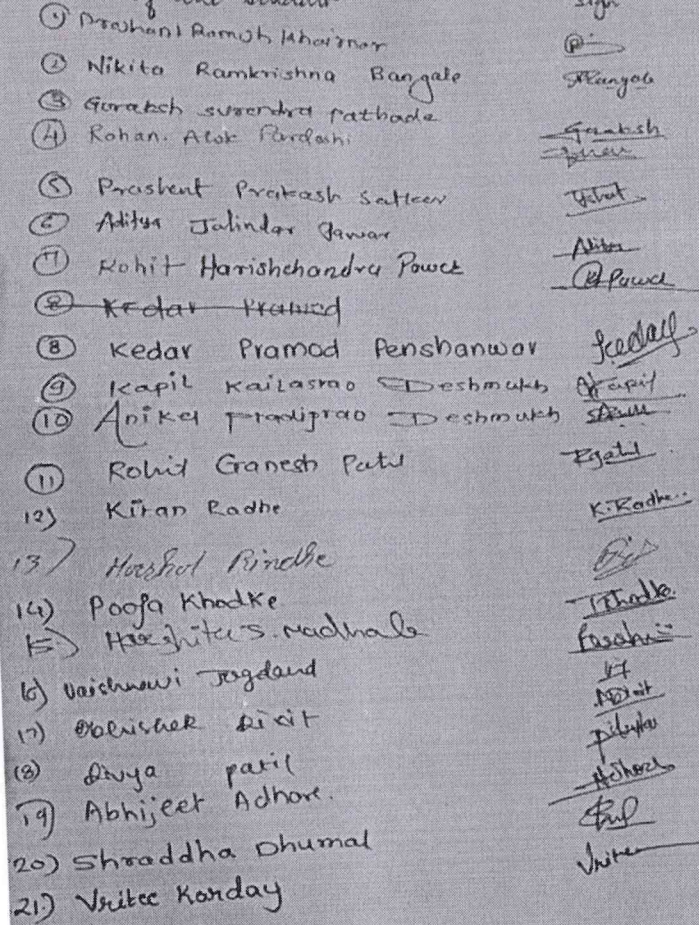 of the student sign
① Prashant Ramesh Khairnar
② Nikita Ramkrishna Bangale
③ Goraksh surendra pathade Goraksh
④ Rohan. Alok Pardeshi
⑤ Prashent Prakash
⑥ Aditya Jalindar Pawar Aditya
⑦ Rohit Harishchandra Pawar
⑧ Kedar Pramod
⑧ Kedar Pramod Penshanwar Kedar
⑨ Kapil Kailasrao Deshmukh Kapil
⑩ Aniket Pradiprao Deshmukh
⑪ Rohit Ganesh Patil Rgatil
12) Kiran Radhe K. Radhe
13) Harshal Rindhe
14) Pooja Khadke
15) Harshita S. Madhale
16) Vaishnavi Jogdand
17) Abhishek Dixit
18) Divya patil
19) Abhijeet Adhore. Adhore
20) Shraddha Dhumal
21) Vritee Karday Vritee